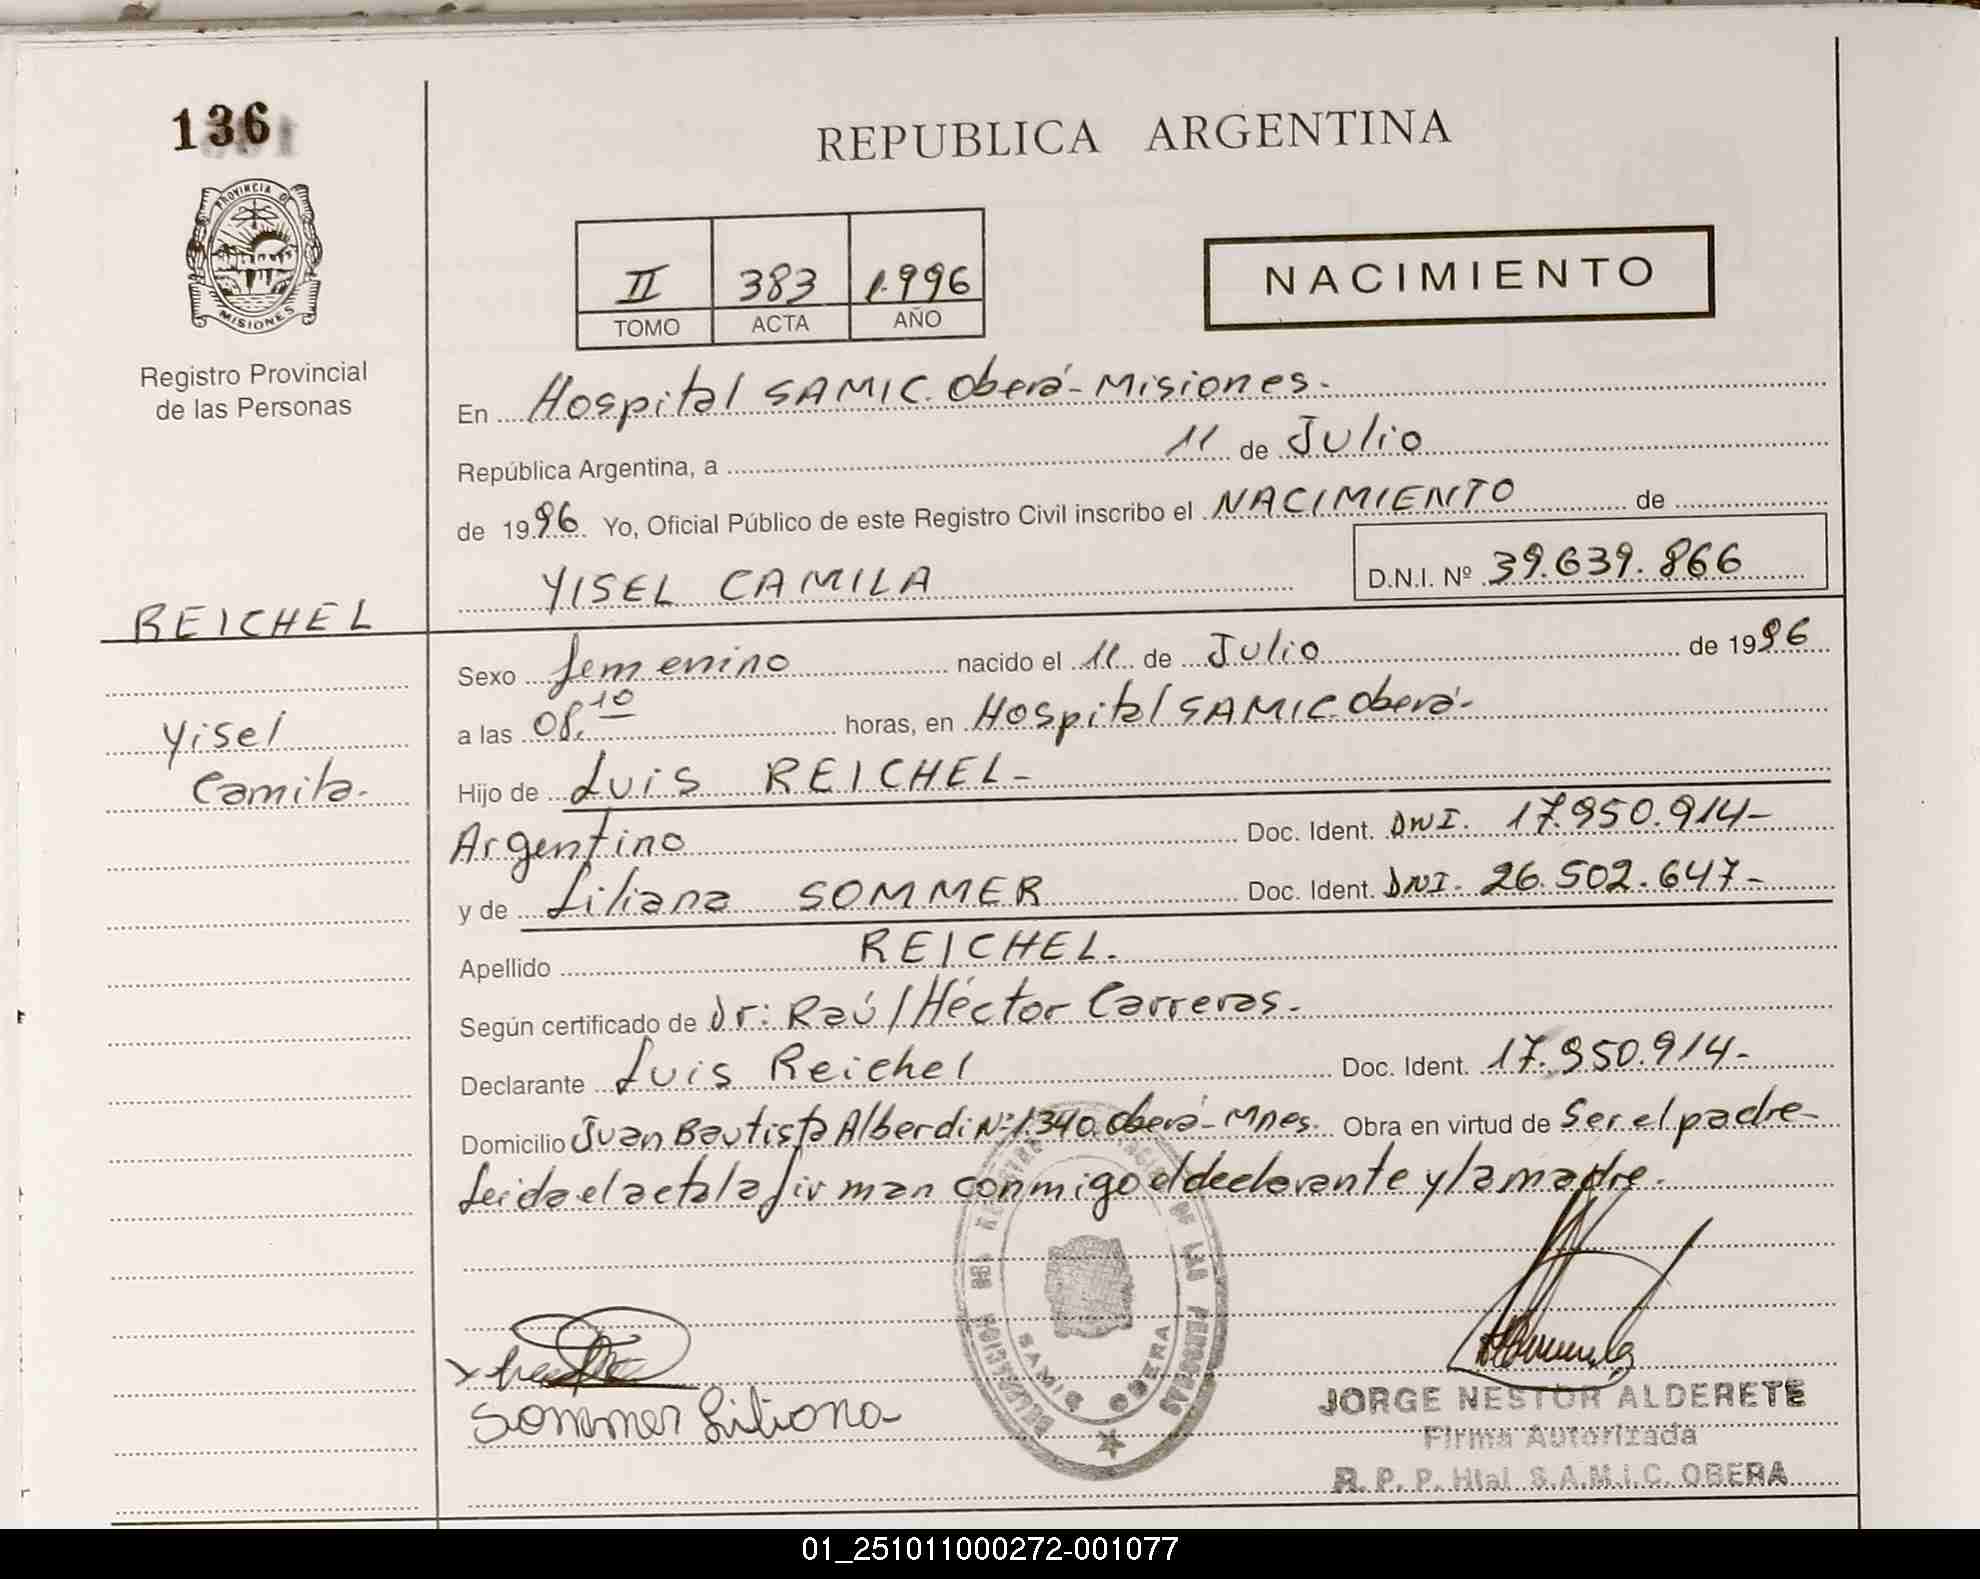 136
REPUBLICA ARGENTINA
PROVINCIA DE
MISIONES
Registro Provincial
de las Personas
II 383 1.996
TOMO ACTA AÑO
NACIMIENTO
En Hospital SAMIC. Oberá - Misiones.-
República Argentina, a 11 de Julio
de 1996 Yo, Oficial Público de este Registro Civil inscribo el NACIMIENTO de
YISEL CAMILA D.N.I. Nº 39.639.866
REICHEL
Yisel
Camila.
Sexo femenino nacido el 11 de Julio de 1996
a las 08.10 horas, en Hospital SAMIC Oberá-
Hijo de Luis REICHEL-
Argentino Doc. Ident. DNI. 17.950.914-
y de Liliana SOMMER Doc. Ident. DNI. 26.502.647-
Apellido REICHEL.
Según certificado de Dr: Raúl Héctor Carreras.
Declarante Luis Reichel Doc. Ident. 17.950.914-
Domicilio Juan Bautista Alberdi Nº 1.340. Oberá - Mnes. Obra en virtud de Ser el padre-
Leida el acta la firman conmigo el declarante y la madre.
SAMIC OBERA
Sommer Liliana
JORGE NESTOR ALDERETE
Firma Autorizada
R. P. P. Htal. S.A.M.I.C. OBERA
01_251011000272-001077